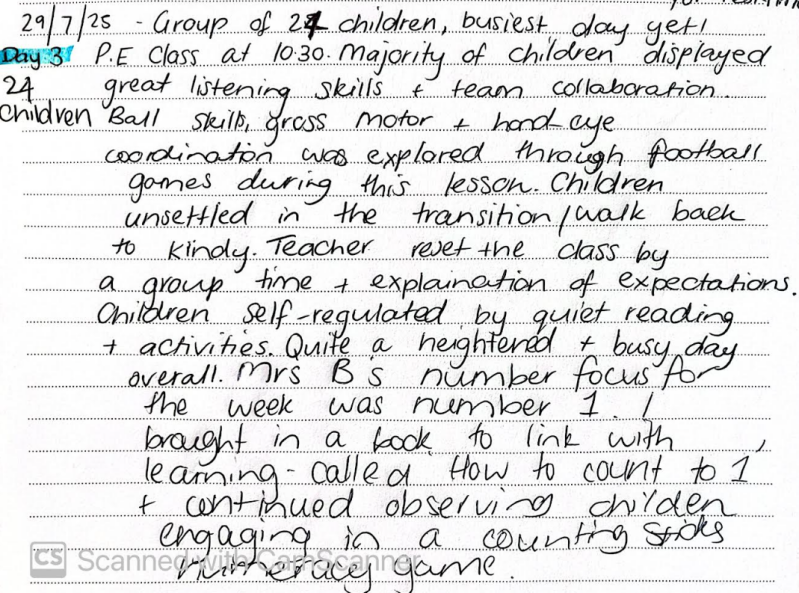 29/7/25 - Group of 24 children, busiest day yet!
Day 3 P.E Class at 10:30. Majority of children displayed
24 great listening skills + team collaboration.
Children Ball skills, gross motor + hand eye
coordination was explored through football
games during this lesson. Children
unsettled in the transition/walk back
to kindy. Teacher reset the class by
a group time + explaination of expectations.
Children self-regulated by quiet reading
+ activities. Quite a heightened + busy day
overall. Mrs B's number focus for
the week was number 1. I
brought in a book to link with
learning - called How to count to 1
+ continued observing children
engaging in a counting sticks
numeracy game.
CS Scanned with CamScanner